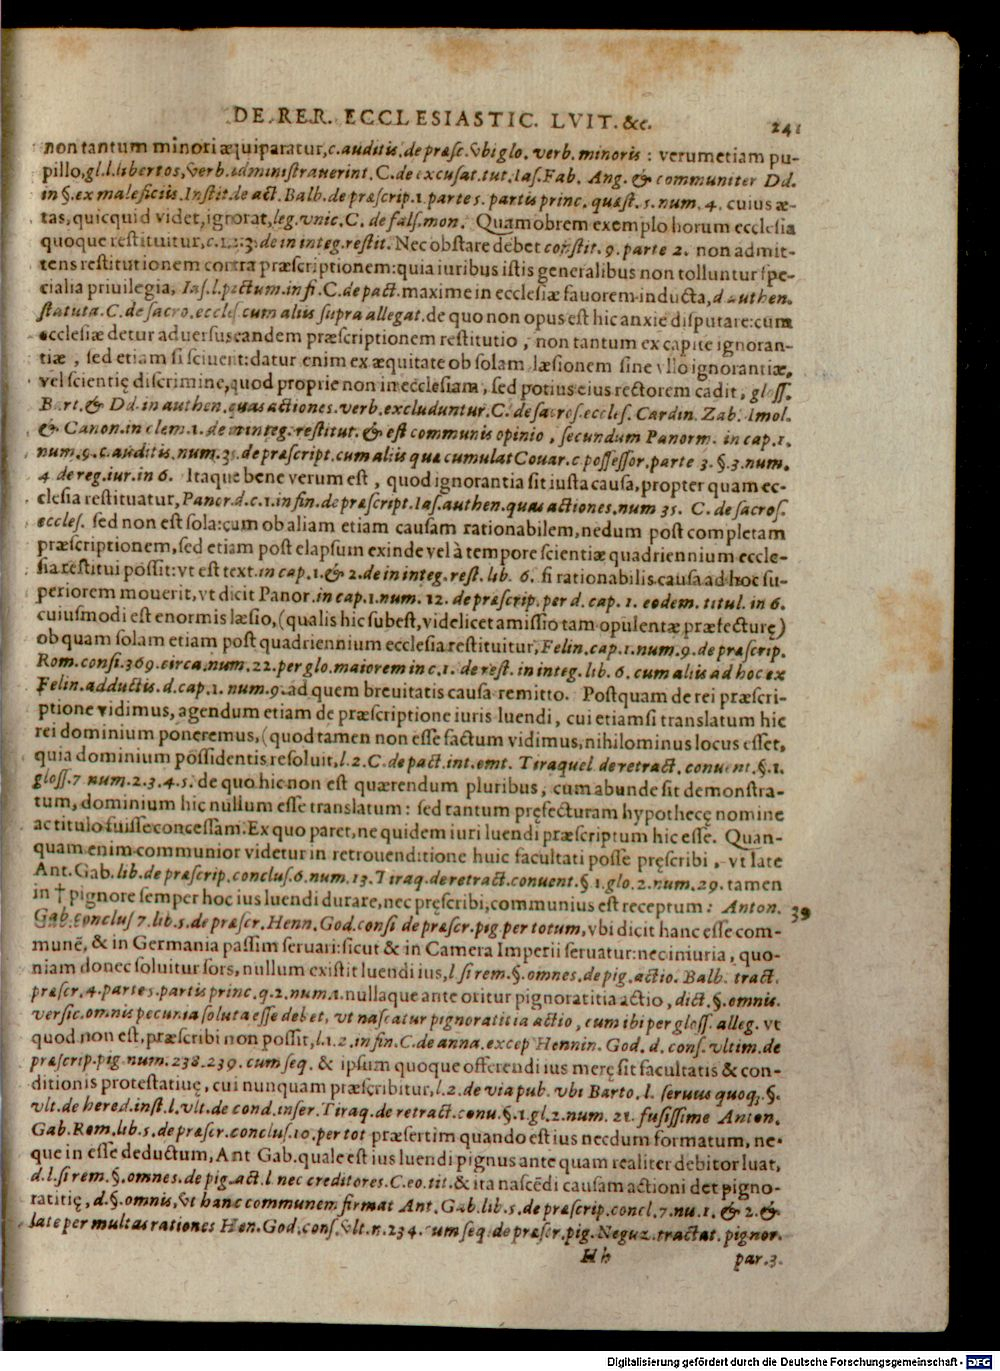 DE.RER. ECCLESIASTIC. LVIT. &c. 241
non tantum minori æquiparatur, c. auditis. de præsc. vbi glo. verb. minoris : verumetiam pu-
pillo, gl. l. libertos, verb. administrauerint. C. de excusat. tut. Ias. Fab. Ang. & communiter Dd.
in §. ex maleficiis. Instit. de act. Balb. de præscrip. 1. parte 5. partis princ. quæst. 5. num. 4. cuius æ-
tas, quicquid videt, ignorat, leg. vnic. C. de fals. mon. Quamobrem exemplo horum ecclesia
quoque restituitur, c. 1. 2. 3. de in integ. restit. Nec obstare debet constit. 9. parte 2. non admit-
tens restitutionem contra præscriptionem: quia iuribus istis generalibus non tolluntur spe-
cialia priuilegia, Ias. l. pactum. in fi. C. de pact. maxime in ecclesiæ fauorem inducta, d. authen.
statuta. C. de sacro. eccles. cum aliis supra allegat. de quo non opus est hic anxie disputare: cum
ecclesiæ detur aduersus eandem præscriptionem restitutio , non tantum ex capite ignoran-
tiæ , sed etiam si sciuerit: datur enim ex æquitate ob solam læsionem sine vllo ignorantiæ,
vel scientię discrimine, quod proprie non in ecclesiam, sed potius eius rectorem cadit, gloss.
Bart. & Dd. in authen. quas actiones. verb. excluduntur. C. de sacros. eccles. Cardin. Zab. Imol.
& Canon. in clem. 1. de in integ. restitut. & est communis opinio , secundum Panorm. in cap. 1.
num. 9. c. auditis. num. 31. de præscript. cum aliis quæ cumulat Couar. c possessor. parte 3. §. 3. num.
4. de reg. iur. in 6. Itaque bene verum est , quod ignorantia sit iusta causa, propter quam ec-
clesia restituatur, Panor. d. c. 1. in fin. de præscript. Ias. authen. quas actiones. num 31. C. de sacros.
eccles. sed non est sola: cum ob aliam etiam causam rationabilem, nedum post completam
præscriptionem, sed etiam post elapsum exinde vel à tempore scientiæ quadriennium eccle-
sia restitui possit: vt est text. in cap. 1. & 2. de in integ. rest. lib. 6. si rationabilis causa ad hoc su-
periorem mouerit, vt dicit Panor. in cap. 1. num. 12. de præscrip. per d. cap. 1. eodem. titul. in 6.
cuiusmodi est enormis læsio, (qualis hic subest, videlicet amissio tam opulentæ præfecturę)
ob quam solam etiam post quadriennium ecclesia restituitur, Felin. cap. 1. num. 9. de præscrip.
Rom. consi. 369. circa. num. 22. per glo. maiorem in c. 1. de rest. in integ. lib. 6. cum aliis ad hoc ex
Felin. adductis. d. cap. 1. num. 9. ad quem breuitatis causa remitto. Postquam de rei præscri-
ptione vidimus, agendum etiam de præscriptione iuris luendi, cui etiamsi translatum hic
rei dominium poneremus, (quod tamen non esse factum vidimus, nihilominus locus esset,
quia dominium possidentis resoluit, l. 2. C. de pact. int. emt. Tiraquel de retract. conuent. §. 1.
gloss. 7 num. 2. 3. 4. 5. de quo hic non est quærendum pluribus, cum abunde sit demonstra-
tum, dominium hic nullum esse translatum : sed tantum pręfecturam hypothecę nomine
ac titulo fuisse concessam. Ex quo patet, ne quidem iuri luendi præscriptum hic esse. Quan-
quam enim communior videtur in retrouenditione huic facultati posse pręscribi , vt late
Ant. Gab. lib. de præscrip. conclus. 6. num. 13. Tiraq. de retract. conuent. § 1. glo. 2. num. 29. tamen
in † pignore semper hoc ius luendi durare, nec pręscribi, communius est receptum : Anton. 39
Gab. conclus 7. lib. 5. de præscr. Henn. God. consi de præscr. pig per totum, vbi dicit hanc esse com-
munē, & in Germania passim seruari: sicut & in Camera Imperii seruatur: nec iniuria , quo-
niam donec soluitur sors, nullum existit luendi ius, l si rem. §. omnes. de pig. actio. Balb. tract.
præscr. 4. partes. partis princ. q. 2. num. 1. nullaque ante oritur pignoratitia actio, dict. §. omnis.
versic. omnis pecunia soluta esse debet, vt nascatur pignoratitia actio , cum ibi per gloss. alleg. vt
quod non est, præscribi non possit, l. 1. 2. in fin. C. de anna. excep Hennin. God. d. cons. vltim. de
præscrip. pig num. 238. 239. cum seq. & ipsum quoque offerendi ius merę sit facultatis & con-
ditionis protestatiuę, cui nunquam præscribitur, l. 2. de via pub. vbi Barto. l. seruus quoq;. §.
vlt. de hered. inst. l. vlt. de cond. inser. Tiraq. de retract. conu. §. 1. gl. 2. num. 21. fusissime Anton.
Gab. Rom. lib. 5. de præscr. conclus. 10. per tot præsertim quando est ius necdum formatum, ne-
que in esse deductum, Ant Gab. quale est ius luendi pignus ante quam realiter debitor luat,
d. l. si rem. §. omnes. de pig. act. l. nec creditores. C. eo. tit. & ita nascēdi causam actioni det pigno-
ratitię, d. §. omnis, vt hanc communem firmat Ant. Gab. lib. 5. de præscrip. concl. 7. nu. 1. & 2. &
late per multas rationes Hen. God. cons. vlt. n. 234. cum seq. de præscr. pig. Neguz. tractat. pignor.
H h par. 3.
Digitalisierung gefördert durch die Deutsche Forschungsgemeinschaft - DFG